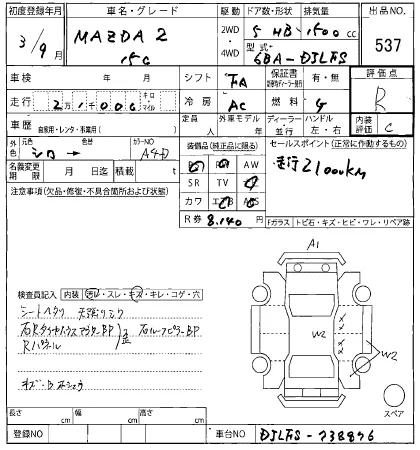 初度登録年月 車名・グレード 駆動 ドア数・形状 排気量 出品NO.
31/9月 MAZDA 2 2WD 4WD 5 HB 1500 cc 537
15C 型式 6BA-DJLFS
車検 年 月 シフト FA 保証書 有・無 評価点
走行 2万1000 キロ マイル 冷房 AC 燃料 G R
車歴 自家用・レンタ・事業用( ) 定員 人 外車モデル 年 ディーラー 並行 ハンドル 左・右 内装評価 C
外色 元色 シロ 色替 カラーNO A4D
装備品(純正品に限る) セールスポイント(正常に作動するもの)
AW
走行21000km
名義変更期限 月 日迄 積載 t
SR TV
カワ
R券 8,140円
Fガラス トビ石・キズ・ヒビ・ワレ・リペア跡
注意事項(欠品・修復・不具合箇所および状態)
A1
W2
W2
スペア
検査員記入 内装 汚レ・スレ・キズ・キレ・コゲ・穴
シートヘタリ 天張りシミ
右RタイヤハウスアウターBP 歪 右ルーフピラーBP
Rパネル
長さ cm 幅 cm 高さ cm
登録NO 車台NO DJLFS-738876